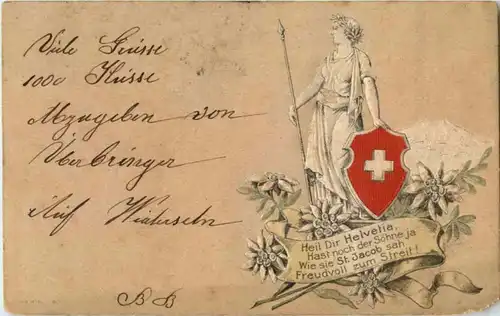 Viele Grüsse
1000 Küsse
Abzugeben von
Überbringer
Auf Wiedersehn
B B
Heil Dir Helvetia,
Hast noch der Söhne ja
Wie sie St. Jacob sah,
Freudvoll zum Streit!